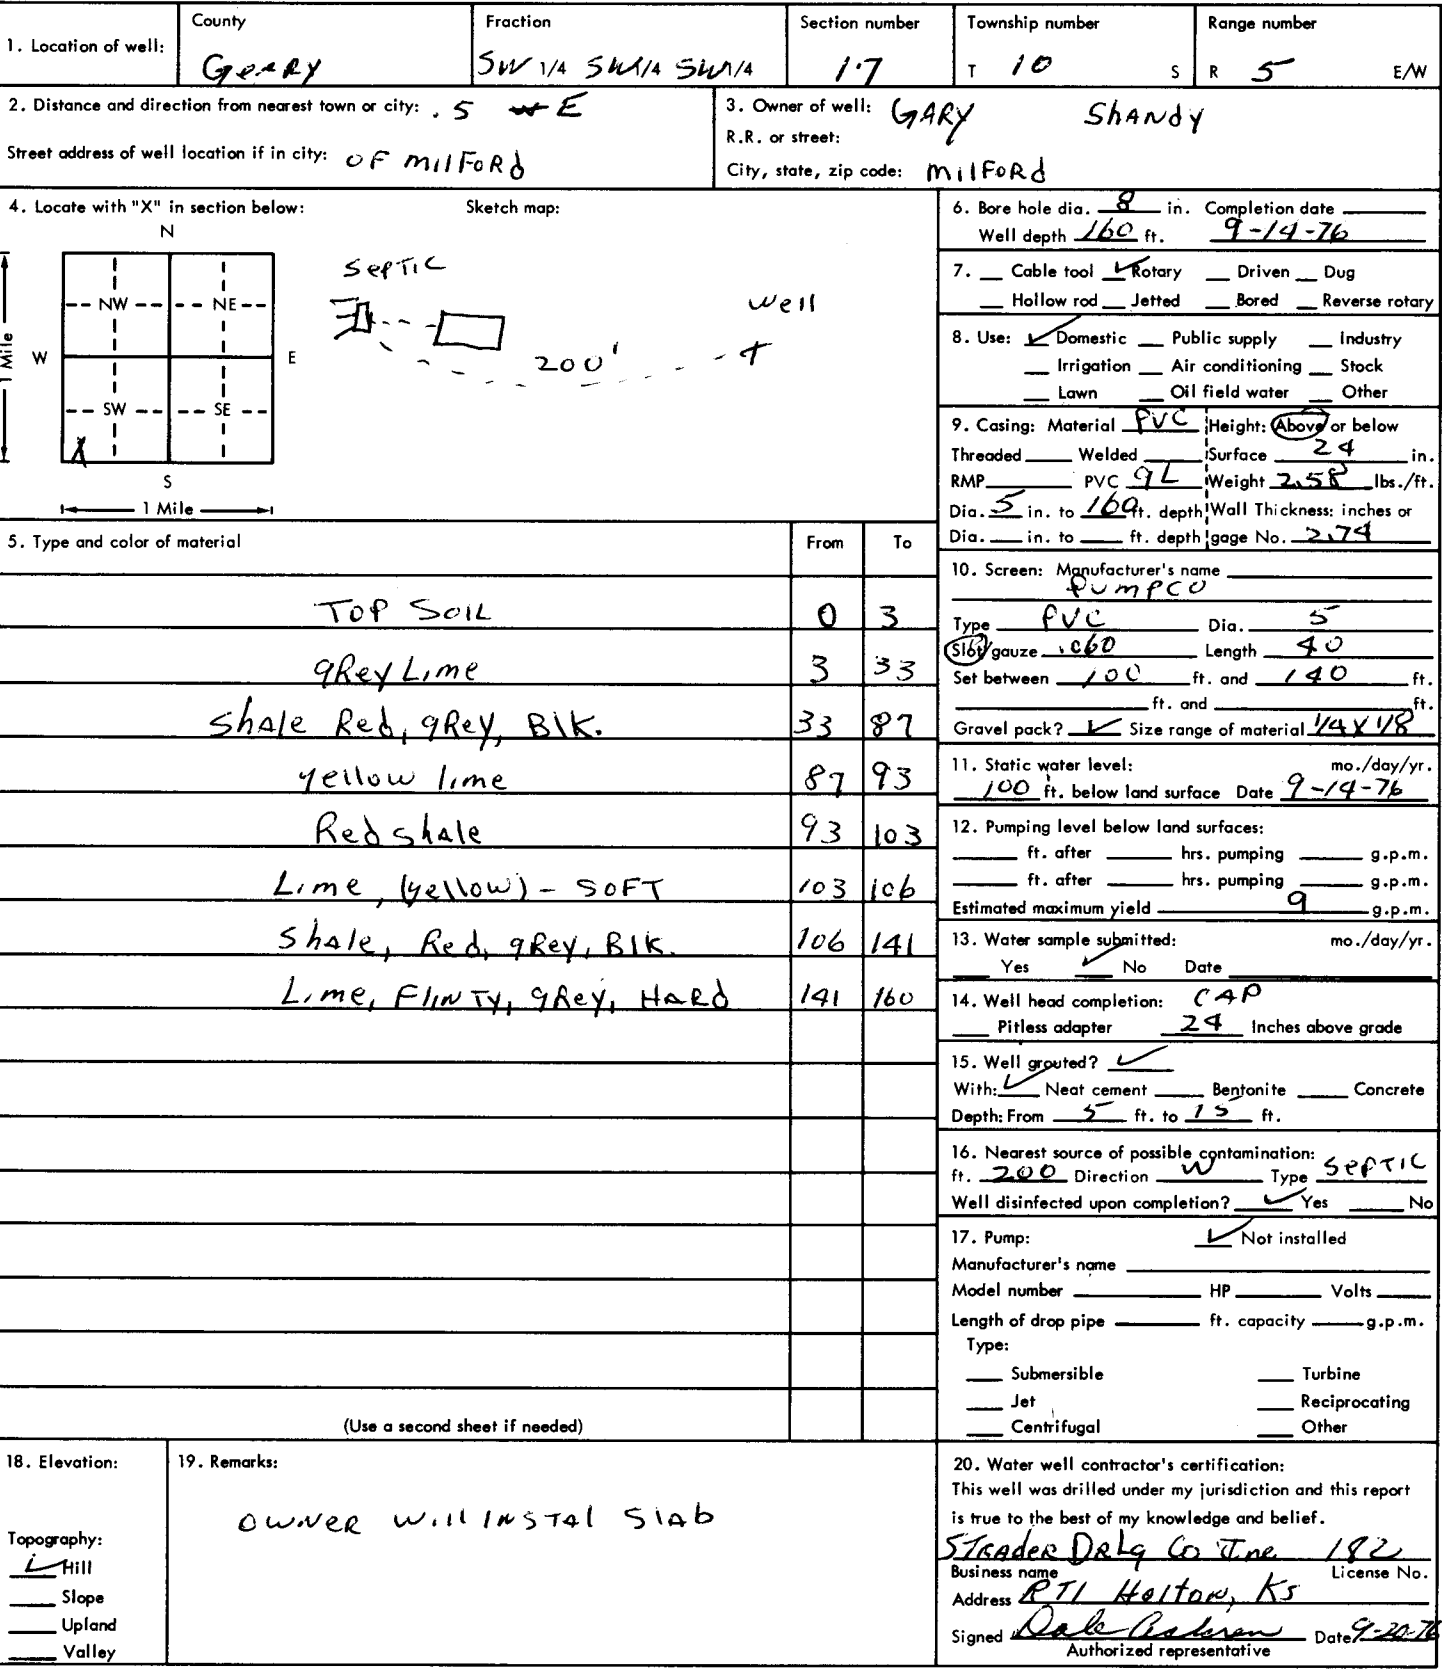 1. Location of well:
County
GeARY
Fraction
SW 1/4 SW 1/4 SW 1/4
Section number
17
Township number
T 10 S
Range number
R 5 E/W
2. Distance and direction from nearest town or city: .5 E
Street address of well location if in city: OF MIlFoRd
3. Owner of well: GARY SHANdy
R.R. or street:
City, state, zip code: MilFoRd
4. Locate with "X" in section below:
Sketch map:
N
NW NE
W E
SW SE
X
S
1 Mile
1 Mile
SepTIC
Well
200'
5. Type and color of material From To
Top SOIL 0 3
gRey Lime 3 33
Shale Red, gRey, Blk. 33 87
yellow lime 87 93
Red shale 93 103
Lime, (yellow) - SOFT 103 106
Shale, Red, gRey, Blk. 106 141
Lime, FlINTY, gRey, HARd 141 160
(Use a second sheet if needed)
6. Bore hole dia. 8 in. Completion date
Well depth 160 ft. 9-14-76
7. Cable tool ✓ Rotary Driven Dug
Hollow rod Jetted Bored Reverse rotary
8. Use: ✓ Domestic Public supply Industry
Irrigation Air conditioning Stock
Lawn Oil field water Other
9. Casing: Material PVC Height: Above or below
Threaded Welded Surface 24 in.
RMP PVC gL Weight 2.58 lbs./ft.
Dia. 5 in. to 160 ft. depth Wall Thickness: inches or
Dia. in. to ft. depth gage No. 2.74
10. Screen: Manufacturer's name
PUMPCO
Type PVC Dia. 5
Slot/gauze .060 Length 40
Set between 100 ft. and 140 ft.
ft. and ft.
Gravel pack? ✓ Size range of material 1/4 X 1/8
11. Static water level: mo./day/yr.
100 ft. below land surface Date 9-14-76
12. Pumping level below land surfaces:
ft. after hrs. pumping g.p.m.
ft. after hrs. pumping g.p.m.
Estimated maximum yield 9 g.p.m.
13. Water sample submitted: mo./day/yr.
Yes ✓ No Date
14. Well head completion: CAP
Pitless adapter 24 Inches above grade
15. Well grouted? ✓
With: ✓ Neat cement Bentonite Concrete
Depth: From 5 ft. to 15 ft.
16. Nearest source of possible contamination:
ft. 200 Direction W Type SEPTIC
Well disinfected upon completion? ✓ Yes No
17. Pump: ✓ Not installed
Manufacturer's name
Model number HP Volts
Length of drop pipe ft. capacity g.p.m.
Type:
Submersible Turbine
Jet Reciprocating
Centrifugal Other
18. Elevation:
Topography:
✓ Hill
Slope
Upland
Valley
19. Remarks:
OWNER WIll INSTAl SlAb
20. Water well contractor's certification:
This well was drilled under my jurisdiction and this report
is true to the best of my knowledge and belief.
STRAdeR DRLg Co Inc 182
Business name License No.
Address RT1 Holton, Ks
Signed Dale Date 9-20-76
Authorized representative